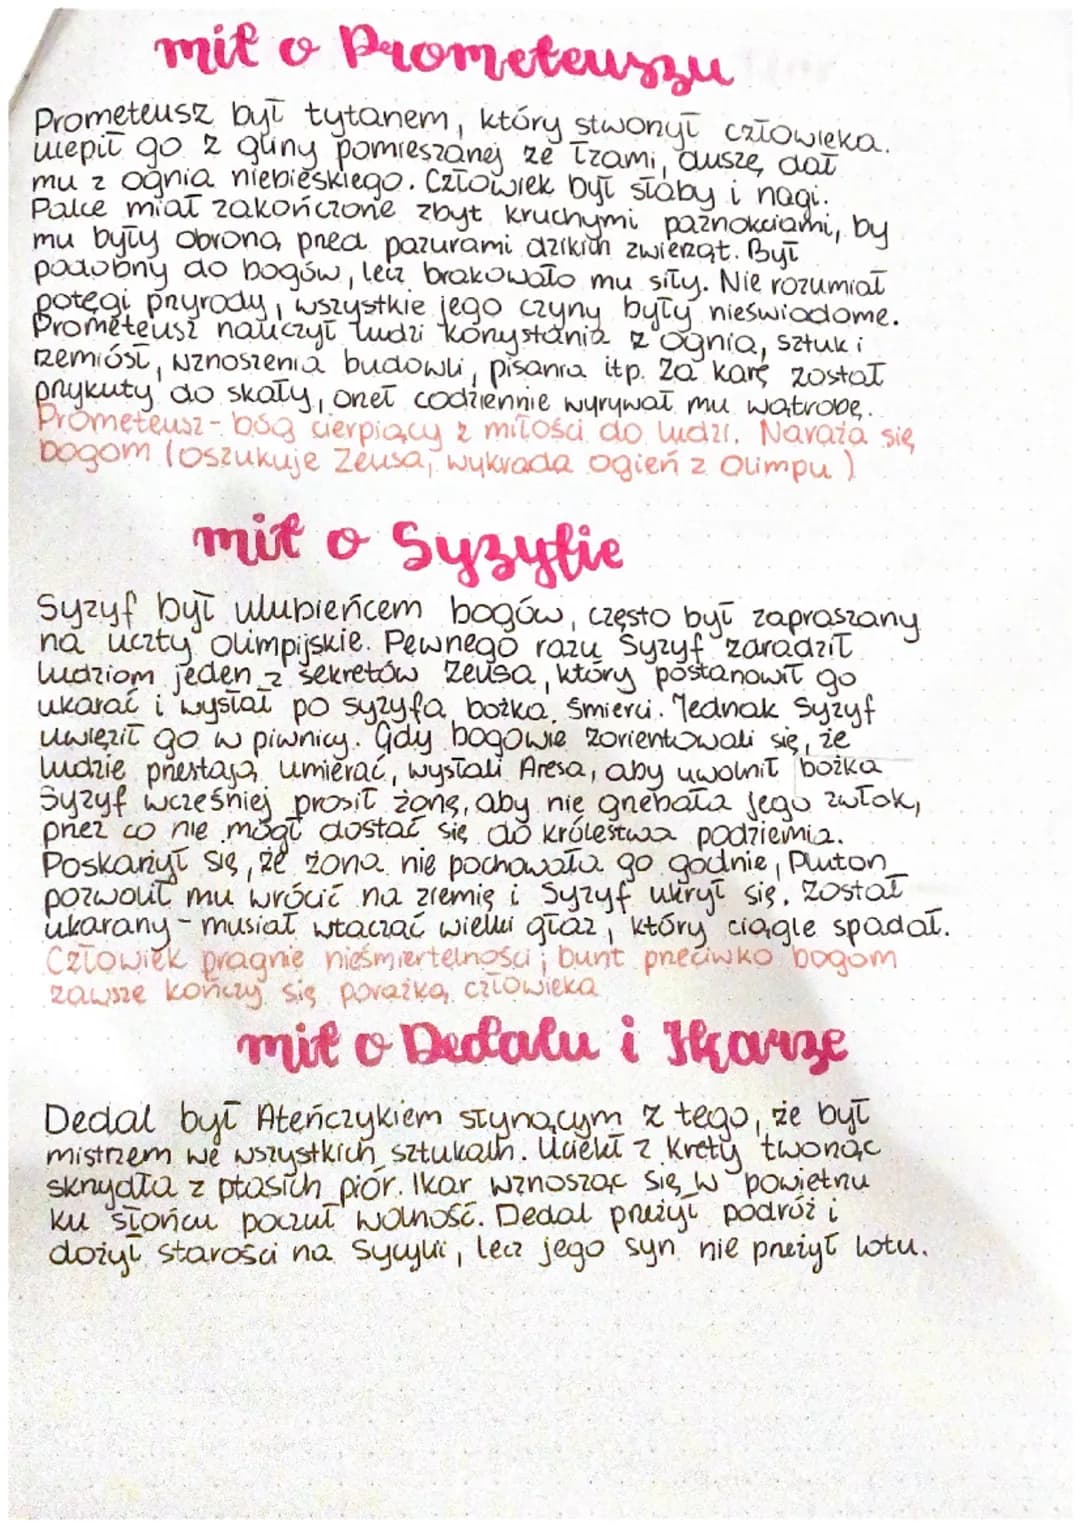 mit o Prometeuszu
Prometeusz był tytanem, który stworzył człowieka.
Ulepił go z gliny pomieszanej ze łzami, duszę dał
mu z ognia niebieskiego. Człowiek był słaby i nagi.
Palce miał zakończone zbyt kruchymi paznokciami, by
mu były obroną przed pazurami dzikich zwierząt. Był
podobny do bogów, lecz brakowało mu siły. Nie rozumiał
potęgi przyrody, wszystkie jego czyny były nieświadome.
Prometeusz nauczył ludzi korzystania z ognia, sztuk i
rzemiósł, wznoszenia budowli, pisania itp. Za karę został
przykuty do skały, orzeł codziennie wyrywał mu wątrobę.
Prometeusz - bóg cierpiący z miłości do ludzi. Naraża się
bogom (oszukuje Zeusa, wykrada ogień z Olimpu)
mit o Syzyfie
Syzyf był ulubieńcem bogów, często był zapraszany
na uczty olimpijskie. Pewnego razu Syzyf zdradził
ludziom jeden z sekretów Zeusa, który postanowił go
ukarać i wysłał po Syzyfa bożka śmierci. Jednak Syzyf
uwięził go w piwnicy. Gdy bogowie zorientowali się, że
ludzie przestają umierać, wysłali Aresa, aby uwolnił bożka
Syzyf wcześniej prosił żonę, aby nie grzebała jego zwłok,
przez co nie mógł dostać się do królestwa podziemia.
Poskarżył się, że żona nie pochowała go godnie, Pluton
pozwolił mu wrócić na ziemię i Syzyf ukrył się. Został
ukarany - musiał wtaczać wielki głaz, który ciągle spadał.
Człowiek pragnie nieśmiertelności; bunt przeciwko bogom
zawsze kończy się porażką człowieka
mit o Dedalu i Ikarze
Dedal był Ateńczykiem słynącym z tego, że był
mistrzem we wszystkich sztukach. Uciekł z Krety tworząc
skrzydła z ptasich piór. Ikar wznosząc się w powietrzu
ku słońcu poczuł wolność. Dedal przeżył podróż i
dożył starości na Sycylii, lecz jego syn nie przeżył lotu.